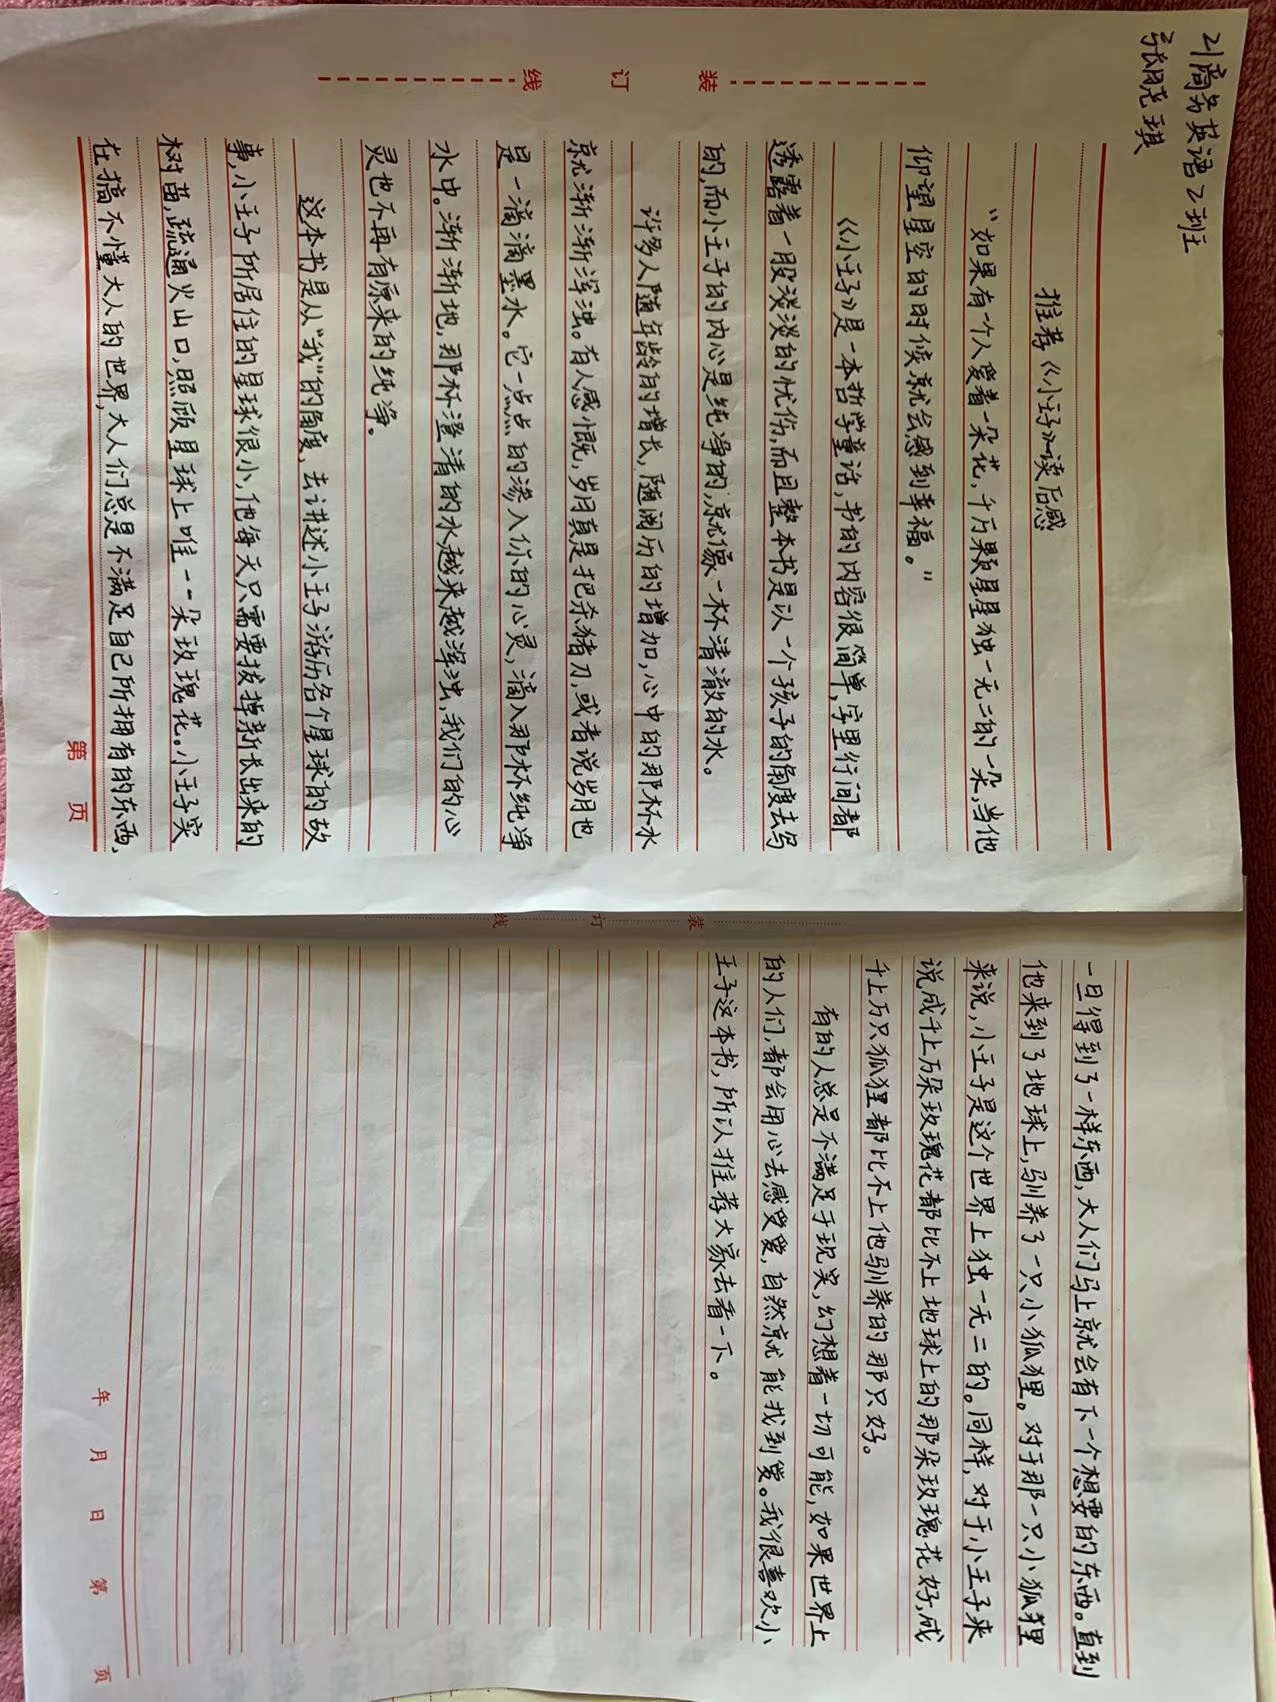 21商务英语2班
张晓琪
装 订 线
推荐《小王子》读后感
“如果有一个人爱着一朵花,千万颗星星独一无二的一朵,当他
仰望星空的时候就会感到幸福。”
《小王子》是一本哲学童话,书的内容很简单,字里行间都
透露着一股淡淡的忧伤,而且整本书是以一个孩子的角度去写
的,而小王子的内心是纯净的,就像一杯清澈的水。
许多人随年龄的增长,随阅历的增加,心中的那杯水
就渐渐浑浊。有人感慨,岁月真是把杀猪刀,或者说岁月也
是一滴滴墨水。它一点点的渗入你的心灵,滴入那杯纯净
水中。渐渐地,那杯澄清的水越来越浑浊,我们的心
灵也不再有原来的纯净。
这本书是从“我”的角度,去讲述小王子游历各个星球的故
事,小王子所居住的星球很小,他每天只需要拔掉新长出来的
树苗,疏通火山口,照顾星球上唯一一朵玫瑰花。小王子实
在搞不懂大人的世界,大人们总是不满足自己所拥有的东西,
第 页
装 订 线
一旦得到了一样东西,大人们马上就会有下一个想要的东西。直到
他来到了地球上,驯养了一只小狐狸。对于那一只小狐狸
来说,小王子是这个世界上独一无二的。同样,对于小王子来
说成千上万朵玫瑰花都比不上地球上的那朵玫瑰花好,成
千上万只狐狸都比不上他驯养的那只好。
有的人总是不满足于现实,幻想着一切可能,如果世界上
的人们,都会用心去感受爱,自然就能找到爱。我很喜欢小
王子这本书,所以推荐大家去看一下。
年 月 日 第 页